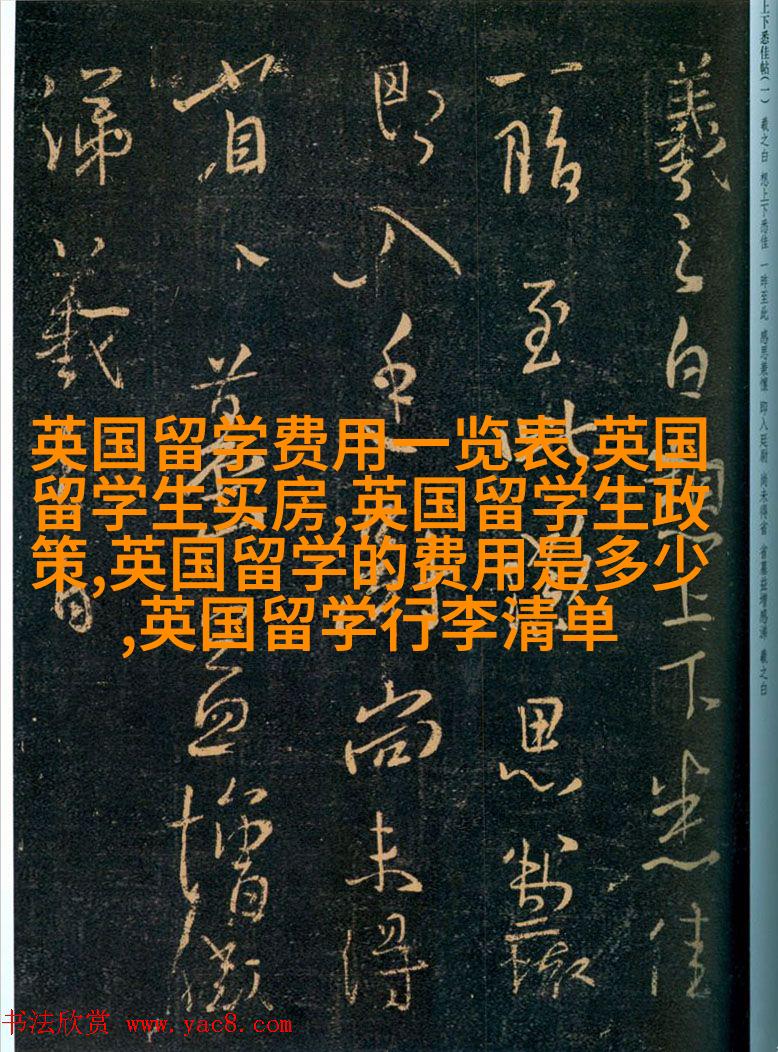 上下悉佳帖(一) 羲之白 想上下悉佳 一昨至此 感思兼 即入廷尉 尚未得省 省墓益增感涕 羲之白
羲之白想上下悉佳
一昨至此感思兼
即入廷尉尚未得
省省墓益增感
涕羲之白
英国留学费用一览表,英国
留学生买房,英国留学生政
策,英国留学的费用是多少
,英国留学行李清单
书法欣赏 www.yac8.com